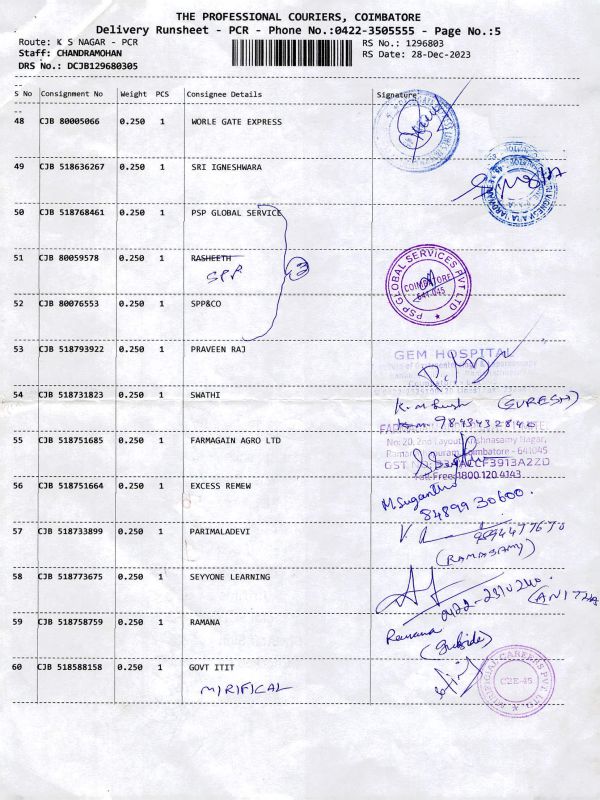 THE PROFESSIONAL COURIERS, COIMBATORE
Delivery Runsheet - PCR - Phone No.:0422-3505555 - Page No.:5
Route: K S NAGAR - PCR RS No.: 1296803
Staff: CHANDRAMOHAN RS Date: 28-Dec-2023
DRS No.: DCJB129680305
S No Consignment No Weight PCS Consignee Details Signature
48 CJB 80005066 0.250 1 WORLE GATE EXPRESS
49 CJB 518636267 0.250 1 SRI IGNESHWARA
50 CJB 518768461 0.250 1 PSP GLOBAL SERVICE
51 CJB 80059578 0.250 1 RASHEETH
SPP 3
PSP GLOBAL SERVICES PVT LTD
COIMBATORE
641 045
52 CJB 80076553 0.250 1 SPP&CO
53 CJB 518793922 0.250 1 PRAVEEN RAJ
GEM HOSPITAL
54 CJB 518731823 0.250 1 SWATHI
(SURESH)
9843432840
55 CJB 518751685 0.250 1 FARMAGAIN AGRO LTD
No: 20, 2nd Layout, Krishnasamy Nagar,
Coimbatore - 641045
Toll Free: 1800 120 4143
56 CJB 518751664 0.250 1 EXCESS REMEW
M.Suganthi
8489930600.
57 CJB 518733899 0.250 1 PARIMALADEVI
(RAMASAMY)
58 CJB 518773675 0.250 1 SEYYONE LEARNING
(ANITHA
59 CJB 518758759 0.250 1 RAMANA
Ramana
60 CJB 518588158 0.250 1 GOVT ITIT
MIRIFICAL
MIRIFICAL CAREERS PVT. LTD.
CBE-45